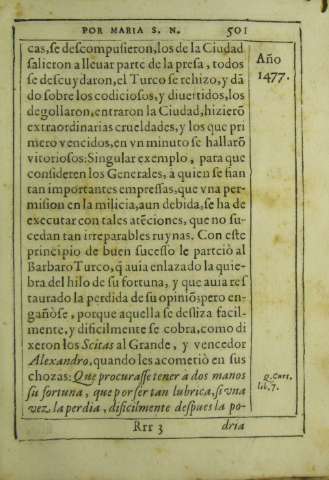 POR MARIA S. N. 501
cas, se descompusieron, los de la Ciudad
salieron a lleuar parte de la presa, todos
se descuydaron, el Turco se rehizo, y dā
do sobre los codiciosos, y diuertidos, los
degollaron, entraron la Ciudad, hizierō
extraordinarias crueldades, y los que pri
mero vencidos, en vn minuto se hallarō
vitoriosos: Singular exemplo, para que
consideren los Generales, à quien se fian
tan importantes empressas, que vna per-
mision en la milicia, aun debida, se ha de
executar con tales atēciones, que no su-
cedan tan irreparables ruynas. Con este
principio de buen sucesso le parteciò al
Barbaro Turco, q̄ auia enlazado la quie-
bra del hilo de su fortuna, y que auia res
taurado la perdida de su opiniō; pero en-
gañòse, porque aquella se desliza facil-
mente, y dificilmente se cobra, como di
xeron los Scitas al Grande, y vencedor
Alexandro, quando les acometiò en sus
chozas: Que procurasse tener a dos manos
su fortuna, que por ser tan lubrica, si vna
vez la perdia, dificilmente despues la po-
Rrr 3 dria
Año
1477.
q. Curt.
lib. 7.